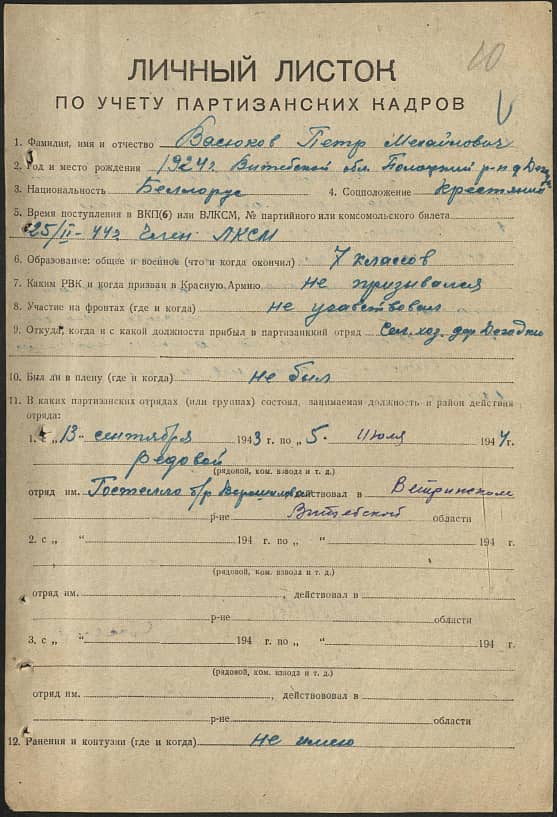 10
ЛИЧНЫЙ ЛИСТОК
ПО УЧЕТУ ПАРТИЗАНСКИХ КАДРОВ
1. Фамилия, имя и отчество Васюков Петр Михайлович
2. Год и место рождения 1924 г. Витебской обл. Полоцкий р-н д.
3. Национальность Беллорус 4. Соцположение Крестянин
5. Время поступления в ВКП(б) или ВЛКСМ, № партийного или комсомольского билета
25/II-44 г. Член ЛКСМ
6. Образование: общее и военное (что и когда окончил) 7 классов
7. Каким РВК и когда призван в Красную Армию не призывался
8. Участие на фронтах (где и когда) не участвовал
9. Откуда, когда и с какой должности прибыл в партизанский отряд Сел. хоз. дер
10. Был ли в плену (где и когда) не был
11. В каких партизанских отрядах (или группах) состоял, занимаемая должность и район действия
отряда:
1. с „13" сентября 1943 г. по „5" июля 1944 г.
редовой
(рядовой, ком. взвода и т. д.)
отряд им. Гостелло б/р действовал в Ветринском
р-не Витебской области
2. с „ " 194 г. по „ " 194 г.
(рядовой, ком. взвода и т. д.)
отряд им. , действовал в
р-не области
3. с „ " 194 г. по „ " 194 г.
(рядовой, ком. взвода и т. д.)
отряд им. , действовал в
р-не области
12. Ранения и контузии (где и когда) не имею